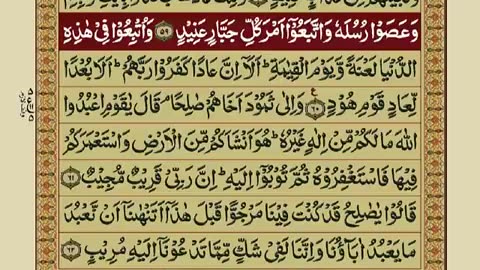 وَعَصَوْا رُسُلَهٗ وَاتَّبَعُوْٓا اَمْرَ كُلِّ جَبَّارٍ عَنِيْدٍ ﴿۵۹﴾ وَاُتْبِعُوْا فِيْ هٰذِهِ
الدُّنْيَا لَعْنَةً وَّيَوْمَ الْقِيٰمَةِ ؕ اَلَآ اِنَّ عَادًا كَفَرُوْا رَبَّهُمْ ؕ اَلَا بُعْدًا
لِّعَادٍ قَوْمِ هُوْدٍ ﴿۶۰﴾ وَاِلٰى ثَمُوْدَ اَخَاهُمْ صٰلِحًا ۘ قَالَ يٰقَوْمِ اعْبُدُوا
اللّٰهَ مَا لَكُمْ مِّنْ اِلٰهٍ غَيْرُهٗ ؕ هُوَ اَنْشَاَكُمْ مِّنَ الْاَرْضِ وَاسْتَعْمَرَكُمْ
فِيْهَا فَاسْتَغْفِرُوْهُ ثُمَّ تُوْبُوْٓا اِلَيْهِ ؕ اِنَّ رَبِّيْ قَرِيْبٌ مُّجِيْبٌ ﴿۶۱﴾
قَالُوْا يٰصٰلِحُ قَدْ كُنْتَ فِيْنَا مَرْجُوًّا قَبْلَ هٰذَآ اَتَنْهٰىنَآ اَنْ نَّعْبُدَ
مَا يَعْبُدُ اٰبَآؤُنَا وَاِنَّنَا لَفِيْ شَكٍّ مِّمَّا تَدْعُوْنَآ اِلَيْهِ مُرِيْبٍ ﴿۶۲﴾